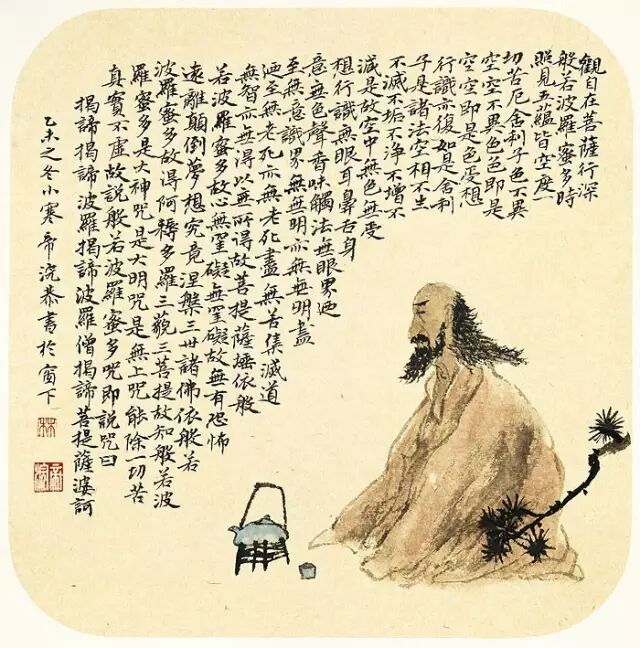 觀自在菩薩行深
般若波羅蜜多時
照見五蘊皆空度一
切苦厄舍利子色不異
空空不異色色即是
空空即是色受想
行識亦復如是舍利
子是諸法空相不生
不滅不垢不淨不增不
滅是故空中無色無受
想行識無眼耳鼻舌身
意無色聲香味觸法無眼界迺
至無意識界無無明亦無無明盡
迺至無老死亦無老死盡無苦集滅道
無智亦無得以無所得故菩提薩埵依般
若波羅蜜多故心無罣礙無罣礙故無有恐怖
遠離顛倒夢想究竟涅槃三世諸佛依般若
波羅蜜多故得阿耨多羅三藐三菩提故知般若波
羅蜜多是大神咒是大明咒是無上咒能除一切苦
真實不虛故說般若波羅蜜多咒即說咒曰
揭諦揭諦波羅揭諦波羅僧揭諦菩提薩婆訶
乙未之冬小寒帝浣恭書於窗下
林
帝浣